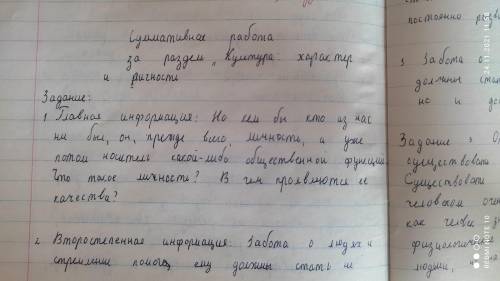 Суммативное работа
за раздел „Культура: характер
и личности
Задание:
1. Главная информация: Но кем бы кто из нас
ни был, он, прежде всего, личность, а уже
потом носитель какой-либо общественной функции
Что такое личность? В чем проявляются ее
качества?
2. Второстепенная информация: Забота о людях и
стремлении помочь ему должны стать не
постоянно
3. Забота
должны
но и
Задание
существовать
Существовать
человеком
как человек
физиологич
людьми,
REDMI NOTE 10